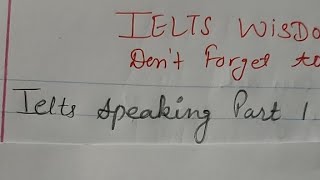 IELTS
Don't Forget
Ielts Speaking Part 1